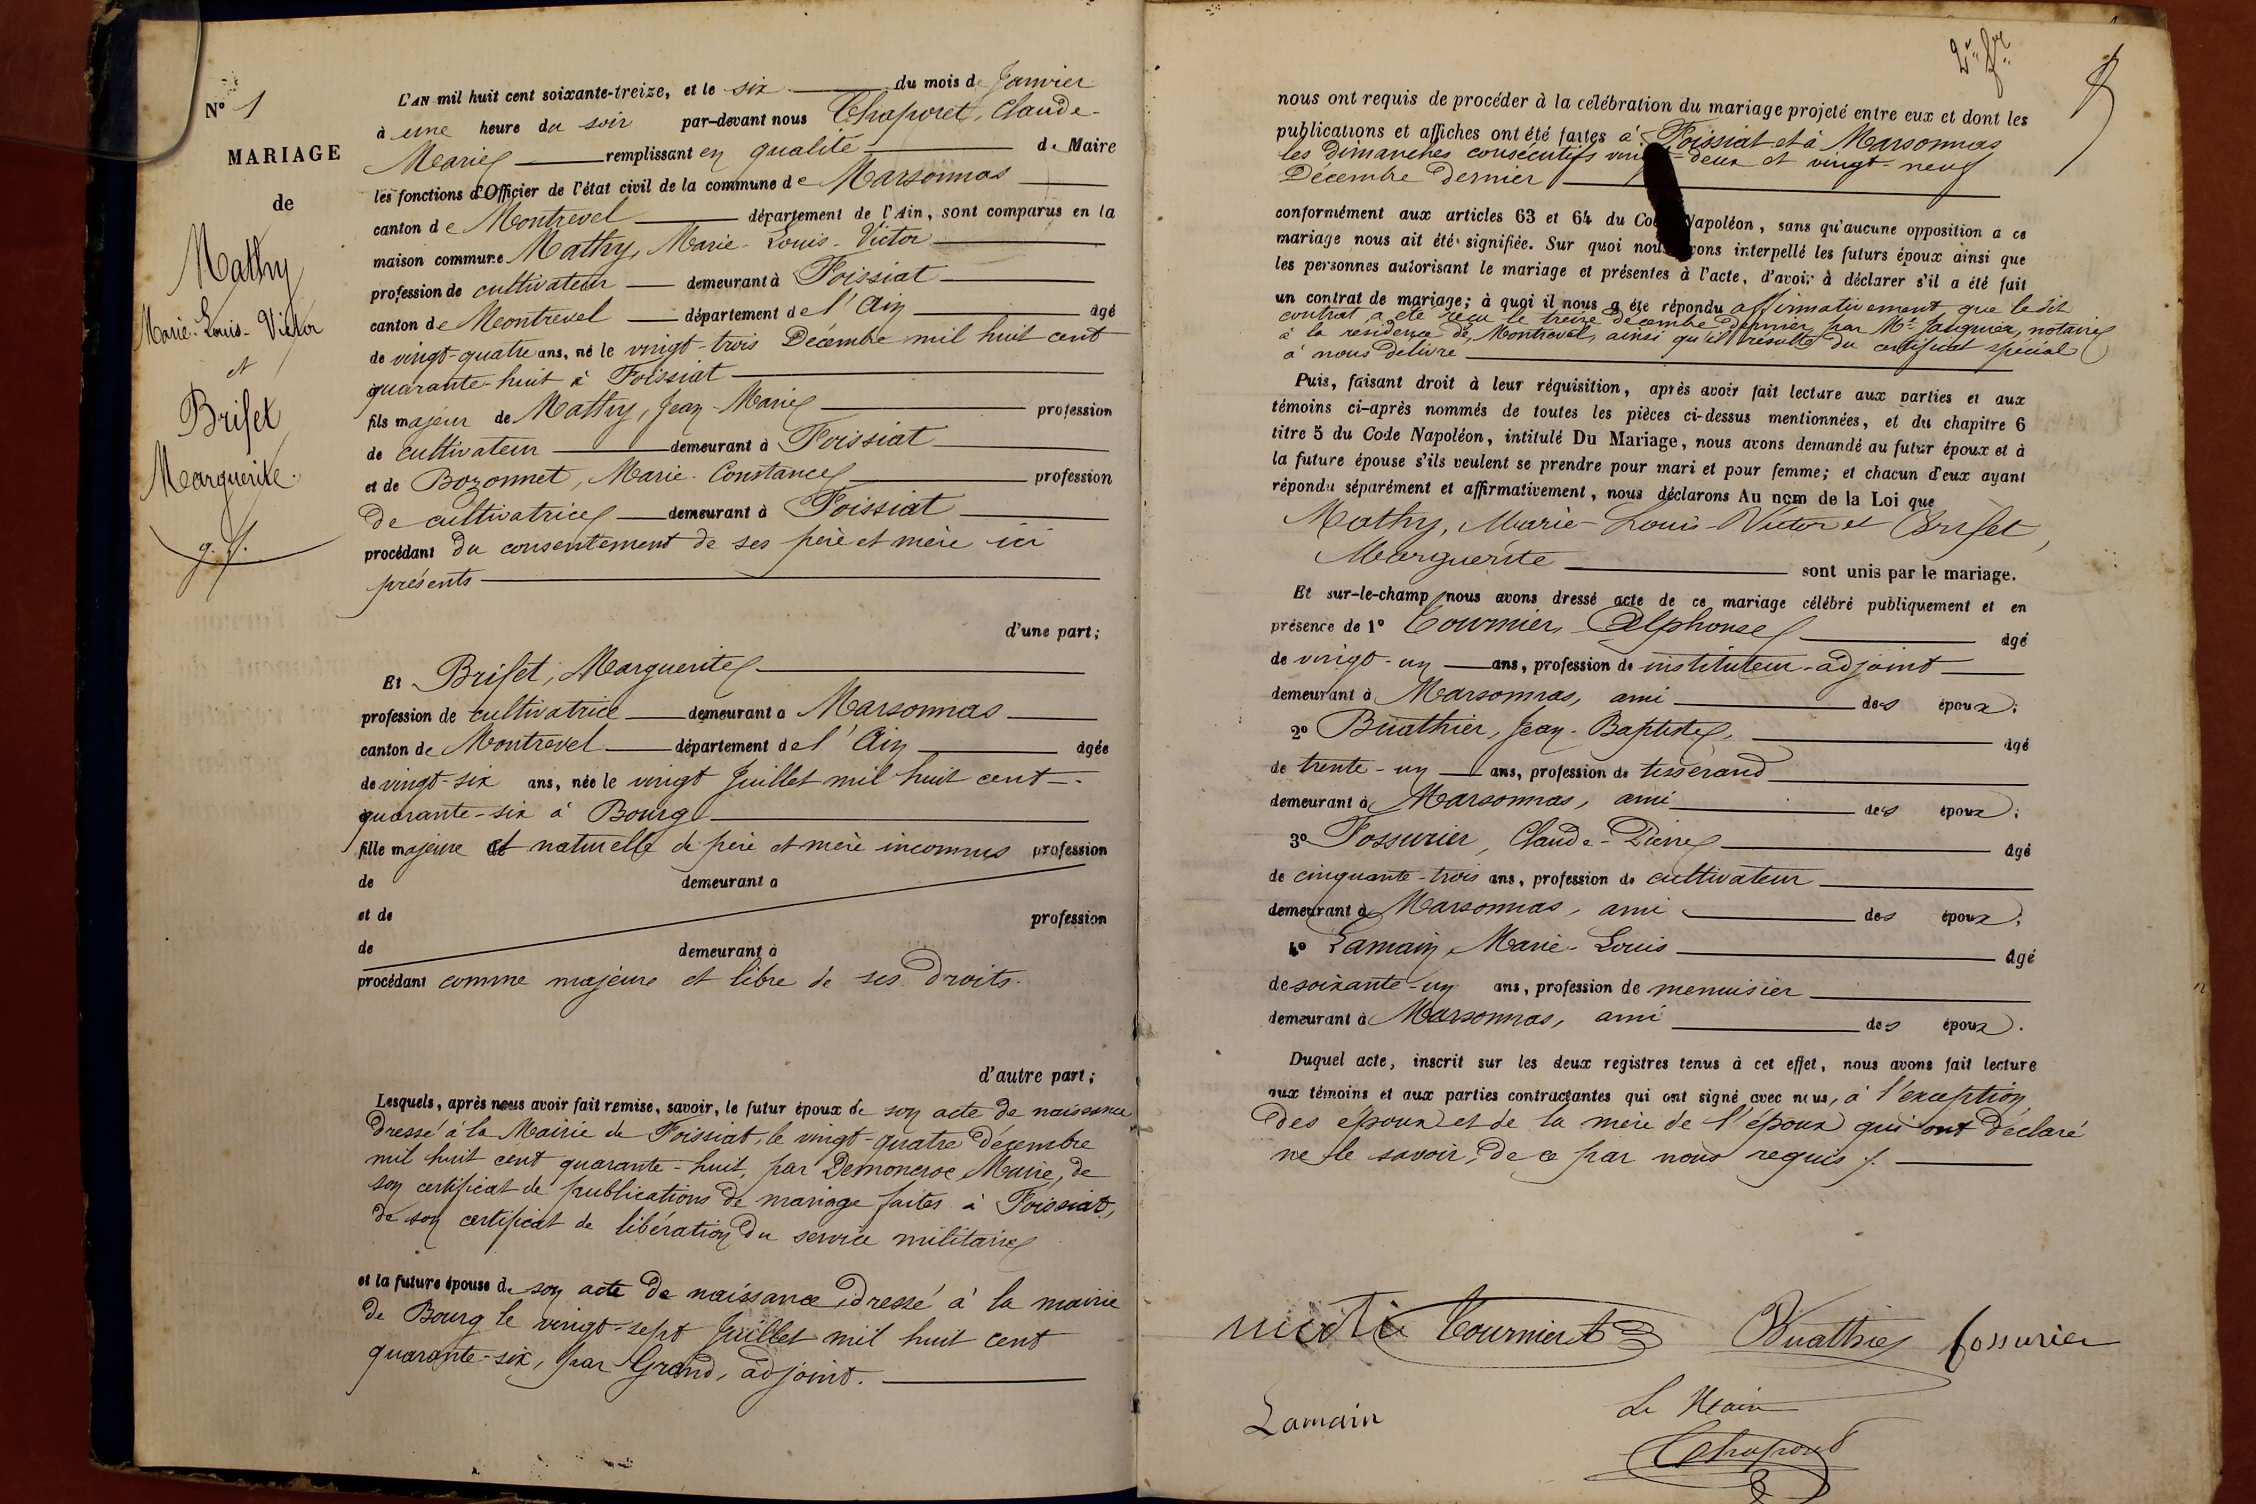 N° 1
MARIAGE
de
Mathy
Marie-Louis-Victor
et
Brifet
Marguerite.
L'AN mil huit cent soixante-treize, et le six du mois de Janvier
à une heure du soir par-devant nous Chaporet, Claude-
Marie remplissant en qualité de Maire
les fonctions d'Officier de l'état civil de la commune de Marsonnas
canton de Montrevel département de l'Ain, sont comparus en la
maison commune Mathy, Marie-Louis-Victor
profession de cultivateur demeurant à Foissiat
canton de Montrevel département de l'Ain âgé
de vingt-quatre ans, né le vingt-trois Décembre mil huit cent
quarante-huit à Foissiat
fils majeur de Mathy, Jean-Marie profession
de cultivateur demeurant à Foissiat
et de Bozonnet, Marie-Constance profession
de cultivatrice demeurant à Foissiat
procédant du consentement de ses père et mère ici
présents
d'une part;
Et Brifet, Marguerite
profession de cultivatrice demeurant à Marsonnas
canton de Montrevel département de l'Ain âgée
de vingt-six ans, née le vingt Juillet mil huit cent-
quarante-six à Bourg
fille majeure et naturelle de père et mère inconnus profession
de demeurant à
et de profession
de demeurant à
procédant comme majeure et libre de ses droits.
d'autre part;
Lesquels, après nous avoir fait remise, savoir, le futur époux de son acte de naissance
dressé à la Mairie de Foissiat, le vingt-quatre Décembre
mil huit cent quarante-huit, par Demoncroc Marie, de
son certificat de publications de mariage faites à Foissiat,
de son certificat de libération du service militaire
et la future épouse de son acte de naissance, dressé à la mairie
de Bourg le vingt-sept Juillet mil huit cent
quarante-six, par Grand, adjoint.
nous ont requis de procéder à la célébration du mariage projeté entre eux et dont les
publications et affiches ont été faites à Foissiat et à Marsonnas
les dimanches consécutifs vingt-deux et vingt neuf
Décembre dernier
conformément aux articles 63 et 64 du Code Napoléon, sans qu'aucune opposition a ce
mariage nous ait été signifiée. Sur quoi nous avons interpellé les futurs époux ainsi que
les personnes autorisant le mariage et présentes à l'acte, d'avoir à déclarer s'il a été fait
un contrat de mariage; à quoi il nous a été répondu affirmativement que ledit
contrat a été reçu le treize décembre dernier, par Me notaire
à la résidence de Montrevel, ainsi qu'il résulte du certificat spécial
à nous délivré
Puis, faisant droit à leur réquisition, après avoir fait lecture aux parties et aux
témoins ci-après nommés de toutes les pièces ci-dessus mentionnées, et du chapitre 6
titre 5 du Code Napoléon, intitulé Du Mariage, nous avons demandé au futur époux et à
la future épouse s'ils veulent se prendre pour mari et pour femme; et chacun d'eux ayant
répondu séparément et affirmativement, nous déclarons Au nom de la Loi que
Mathy, Marie-Louis-Victor et Brifet,
Marguerite sont unis par le mariage.
Et sur-le-champ nous avons dressé acte de ce mariage célébré publiquement et en
présence de 1° Tournier, Alphonse âgé
de vingt-un ans, profession de instituteur-adjoint
demeurant à Marsonnas, ami des époux;
2° Buathier, Jean-Baptiste, âgé
de trente-un ans, profession de tisserand
demeurant à Marsonnas, ami des époux;
3° Fossurier, Claude-Pierre âgé
de cinquante-trois ans, profession de cultivateur
demeurant à Marsonnas, ami des époux;
4° Lamain, Marie-Louis âgé
de soixante-un ans, profession de menuisier
demeurant à Marsonnas, ami des époux.
Duquel acte, inscrit sur les deux registres tenus à cet effet, nous avons fait lecture
aux témoins et aux parties contractantes qui ont signé avec nous, à l'exception
des époux et de la mère de l'époux qui ont déclaré
ne le savoir, de ce par nous requis
Tournier A Buathier fossurier
Lamain Le Maire
Chaporet